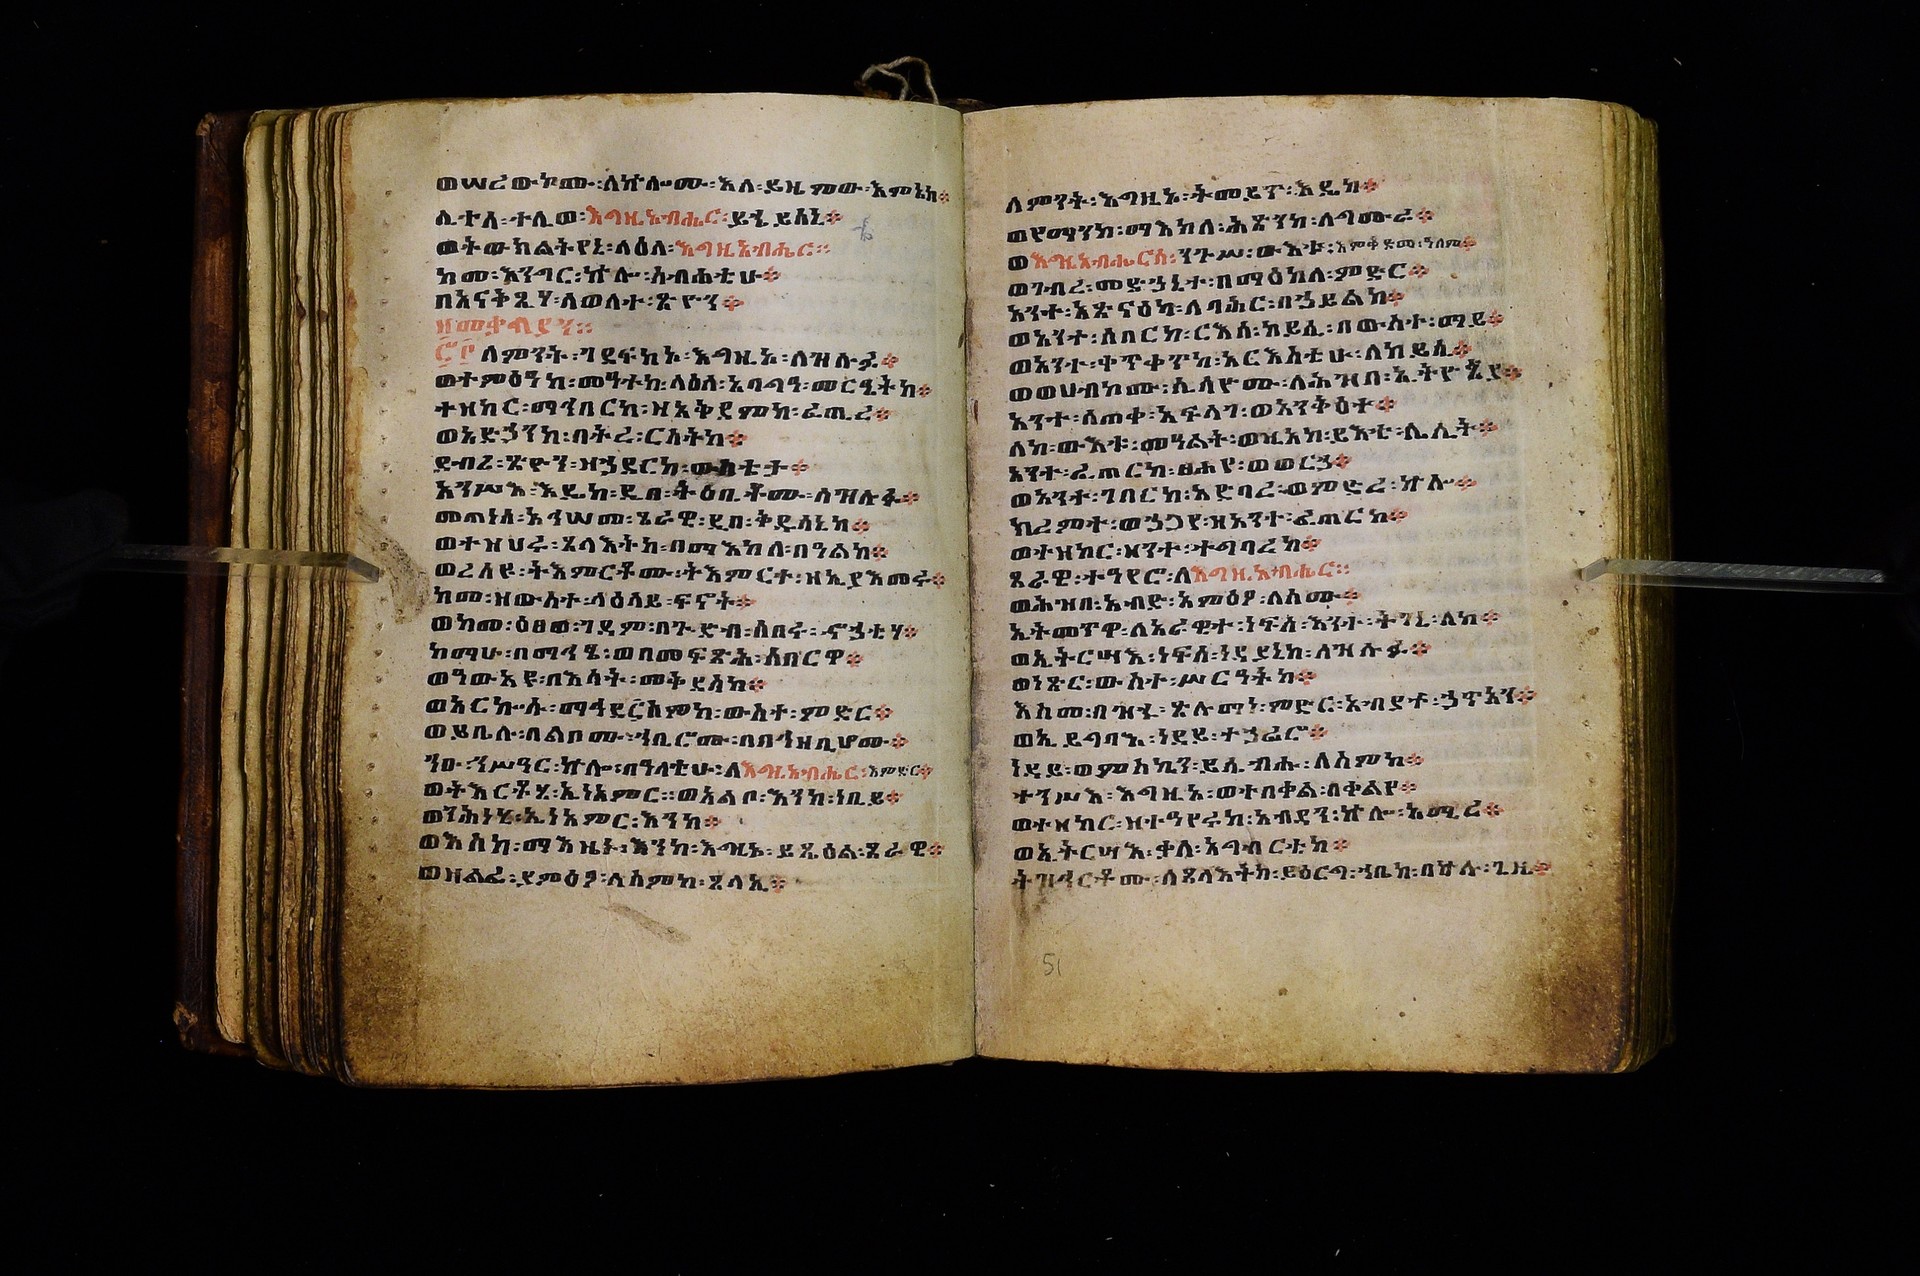 ወሠረውኮሙ፡ለኵሎሙ፡እለ፡ይዜምው፡እምኔከ፨
ሊተሰ፡ተሊወ፡እግዚአብሔር፡ይኄይሰኒ፨
ወትውክልትየኒ፡ላዕለ፡እግዚአብሔር።
ከመ፡እንግር፡ኵሎ፡ስብሐቲሁ፨
በአናቅጺሃ፡ለወለተ፡ጽዮን፨
ዘመቃብያን።
ለምንት፡ገደፍከነ፡እግዚኦ፡ለዝሉፉ፨
ወተምዕዓ፡ከ፡መዓተከ፡ላዕለ፡አባግዓ፡መርዔትከ፨
ተዘከር፡ማኅበርከ፡ዘአቅደምከ፡ፈጢረ፨
ወአድኃንከ፡በትረ፡ርስትከ፨
ደብረ፡ጽዮን፡ዘኃደርከ፡ውስቴታ፨
አንሥእ፡እዴከ፡ዲበ፡ትዕቢቶሙ፡ለዝሉፉ፨
መጠነ፡አኅሠመ፡ፀራዊ፡ዲበ፡ቅዱሳኒከ፨
ወተዝህሩ፡ጸላእትከ፡በማእከለ፡በዓልከ፨
ወረሰዩ፡ትእምርቶሙ፡ትእምርተ፡ዘኢያእመሩ፨
ከመ፡ዘውስተ፡ላዕላይ፡ፍኖት፨
ወከመ፡ዕፀወ፡ገዳም፡በጉድብ፡ሰበሩ፡ኆኃቲሃ፨
ከማሁ፡በማኅፄ፡ወበመፍጽሕ፡ሰበርዋ፨
ወዓውአዩ፡በእሳት፡መቅደሰከ፨
ወአርኰሱ፡ማኅደር፡ስምከ፡ውስተ፡ምድር፨
ወይቤሉ፡በልቦሙ፡ኅቡሮሙ፡በበኅዘቢሆሙ፨
ንዑ፡ንሥዓር፡ኵሎ፡በዓላቲሁ፡ለእግዚአብሔር፡እምድር፨
ወትእርቶሂ፡ኢነአምር።ወአልቦ፡እንከ፡ነቢይ፨
ወንሕነሂ፡ኢነአምር፡እንከ፨
ወእስከ፡ማእዜኑ፡እንከ፡እግዚኦ፡ይጼዕል፡ፀራዊ፨
ወዘልፈ፡ያምዕዖ፡ለስምከ፡ጸላኢ፨
ለምንት፡እግዚኦ፡ትመይጥ፡እዴከ፨
ወየማንከ፡ማእከለ፡ሕፅንከ፡ለግሙራ፨
ወእግዚአብሔርሰ፡ንጉሥ፡ውእቱ፡እምቅድመ፡ዓለም፨
ወገብረ፡መድኃኒተ፡በማዕከለ፡ምድር፨
አንተ፡አጽናዕካ፡ለባሕር፡በኃይልከ፨
ወአንተ፡ሰበርከ፡ርእሰ፡ከይሲ፡በውስተ፡ማይ፨
ወአንተ፡ቀጥቀጥከ፡አርእስቲሁ፡ለከይሲ፨
ወወሀብኮሙ፡ሲሳዮሙ፡ለሕዝበ፡ኢትዮጵያ፨
አንተ፡ሰጠቀ፡አፍላገ፡ወአንቅዕተ፨
ለከ፡ውእቱ፡መዓልት፡ወዚአከ፡ይእቲ፡ሌሊት፨
አንተ፡ፈጠርከ፡ፀሐየ፡ወወርኃ፨
ወአንተ፡ገበርከ፡አድባረ፡ወምድረ፡ኵሎ፨
ክረምተ፡ወኃጋየ፡ዘአንተ፡ፈጠርከ፨
ወተዘከር፡ዘንተ፡ተግባረከ፨
ፀራዊ፡ተዓየሮ፡ለእግዚአብሔር።
ወሕዝበ፡አብድ፡አምዕዖ፡ለስሙ፨
ኢትመጥዋ፡ለአራዊት፡ነፍሰ፡እንተ፡ትገኒ፡ለከ፨
ወኢትርሣእ፡ነፍሰ፡ነዳያኒከ፡ለዝሉፉ፨
ወነጽር፡ውስተ፡ሥርዓትከ፨
እስመ፡በዝኁ፡ጽሉማነ፡ምድር፡አብያተ፡ኃጥአን፨
ወኢይግባእ፡ነደይ፡ተኃፊሮ፨
ነዳይ፡ወምስኪን፡ይሴብሑ፡ለስምከ፨
ተንሥእ፡እግዚኦ፡ወተበቀል፡በቀልየ፨
ወተዘከር፡ዘተዓየሩከ፡አብዳን፡ኵሎ፡አሚረ፨
ወኢትርሣእ፡ቃለ፡አግብርቲከ፨
ትዝኅርቶሙ፡ለጸላእትከ፡ይዕርግ፡ኀቤከ፡በኵሉ፡ጊዜ፨
51